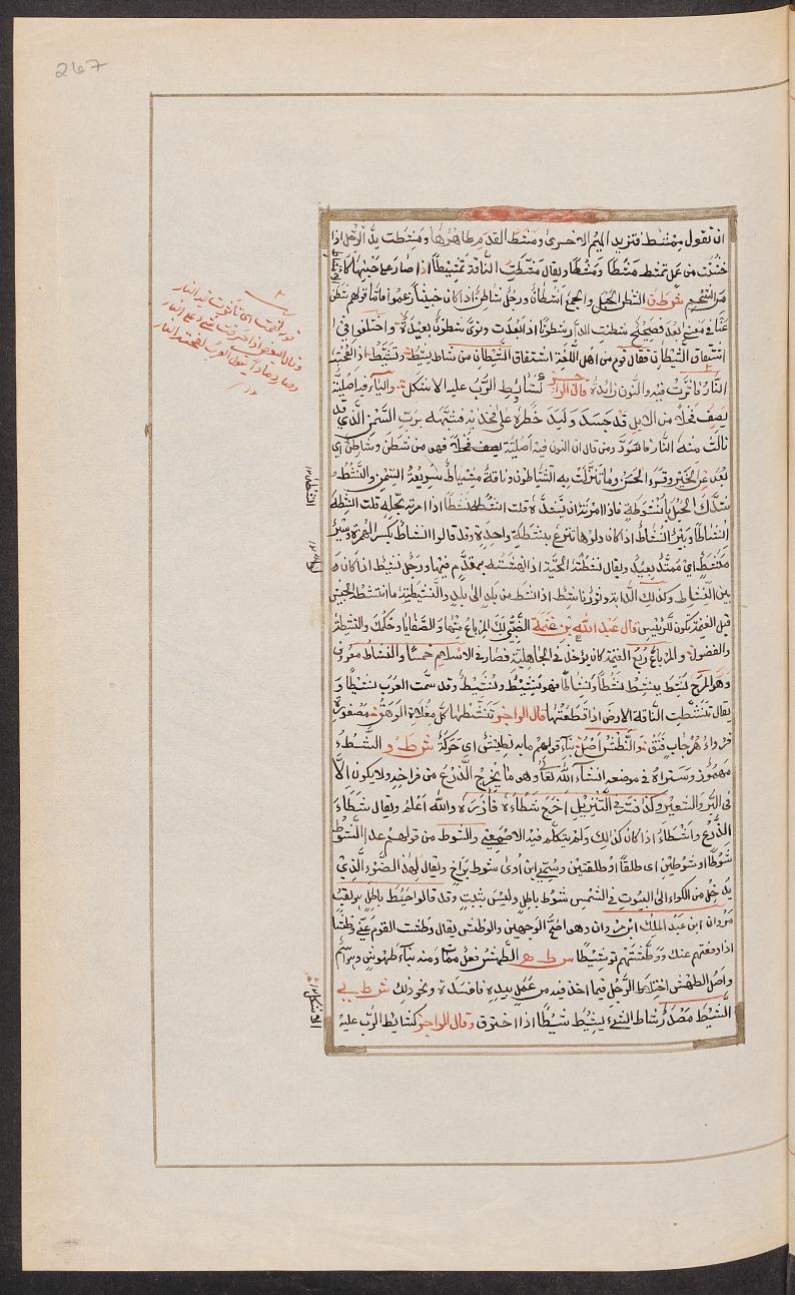 267
ان تقول ممتشط فتزيد الميم الاخرى ومشط القدم ظاهرها ومشطت يد الرجل اذا
خشنت من عمل تمشط مشطا ومشطا ويقال مشطت الناقة تمشيطا اذا صار على جنبيها كالامشاط
من الشحم ش ط ن الشطن الحبل والجمع اشطان ورجل شاطن اذا كان خبيثا زعموا فاما قولهم شطن
عنا في معنى بعد فصحيح شطنت الدار شطونا اذا بعدت ونوى شطون بعيدة واختلفوا في
اشتقاق الشيطان فقال قوم من اهل اللغة اشتقاق الشيطان من شاط يشيط وتشيط اذا لفحته
النار فاثرت فيه والنون زائدة قال الراجز كشائط الرب عليه الاشكل والياء فيه اصلية
يصف فحلا من الابل قد جسد ولبد خطره على فخذيه فشبهه برب السمن الذي قد
نالت منه النار فاسود ومن قال ان النون فيه اصلية فهو من شطن وشاطن اي
بعد عن الخير وقرء الحسن وما تنزلت به الشياطون وناقة مشياط سريعة السمن والنشط
شدك الحبل بانشوطة فاذا امرته ان يشده قلت انشطه نشطا واذا امرته بحله قلت انشطه
انشاطا وبئر انشاط اذا كان دلوها تنزع بنشطة واحدة وقد قالوا انشاط بكسر الهمزة وسير
منتشط اي ممتد بعيد ويقال نشطته الحية اذا نهشته بمقدم فيها ورجل نشيط اذا كان
بين النشاط وكذلك الدابة وثور ناشط اذا نشط من بلد الى بلد والنشيطة ما انتشطه الجيش
قبل الغنيمة تكون للرئيس قال عبد الله بن عنمة الضبي لك المرباع منها والصفايا وحكمك والنشيطة
والفضول والمرباع ربع الغنيمة كان يؤخذ في الجاهلية فصار في الاسلام خمسا والنشاط معروف
وهو المرح نشط ينشط نشطا ونشاطا فهو نشيط وقد سمت العرب نشيطا و
يقال تنشطت الناقة الارض اذا قطعتها قال الراجز تنشطته كل مغلاة الوهق مضبورة
قرواء هرجاب فنق والنطش اصل بناء قولهم ما به نطيش اي حركة ش ط و الشطء
مهموز وستراه في موضعه انشاء الله تعالى وهو ما يخرج الزرع من فراخه ولا يكون الا
في البر والشعير وكذا فسر في التنزيل اخرج شطاه فآزره والله اعلم ويقال شطاء
الزرع واشطاء اذا كان كذلك ولم يتكلم فيه الاصمعي والشوط من قولهم عدا الشوط
شوطا او شوطين اى طلقا او طلقتين وسمي ابن آوى شوط براح ويقال لهذا الضوء الذي
يدخل من الكواء الى البيوت في الشمس شوط باطل وليس بثبت وقد قالوا خيط باطل
مروان ابن عبد الملك ابن مروان وهو اصح الوجهين والوطش يقال وطشت القوم عني وطشا
اذا دفعتهم عنك ووطشتهم توطيشا ش ط ه الطهش فعل ممات ومنه بناء طهوش وهو اسم
واصل الطهش اختلاط الرجل فيما اخذ فيه من عمل بيده فافسده ونحو ذلك ش ط ي
الشيط مصدر شاط الشيء يشيط شيطا اذا احترق وقال الراجز كشائط الرب عليه
الاشكل